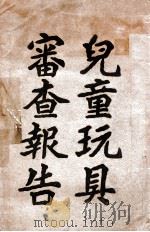 兒童玩具
審查報告